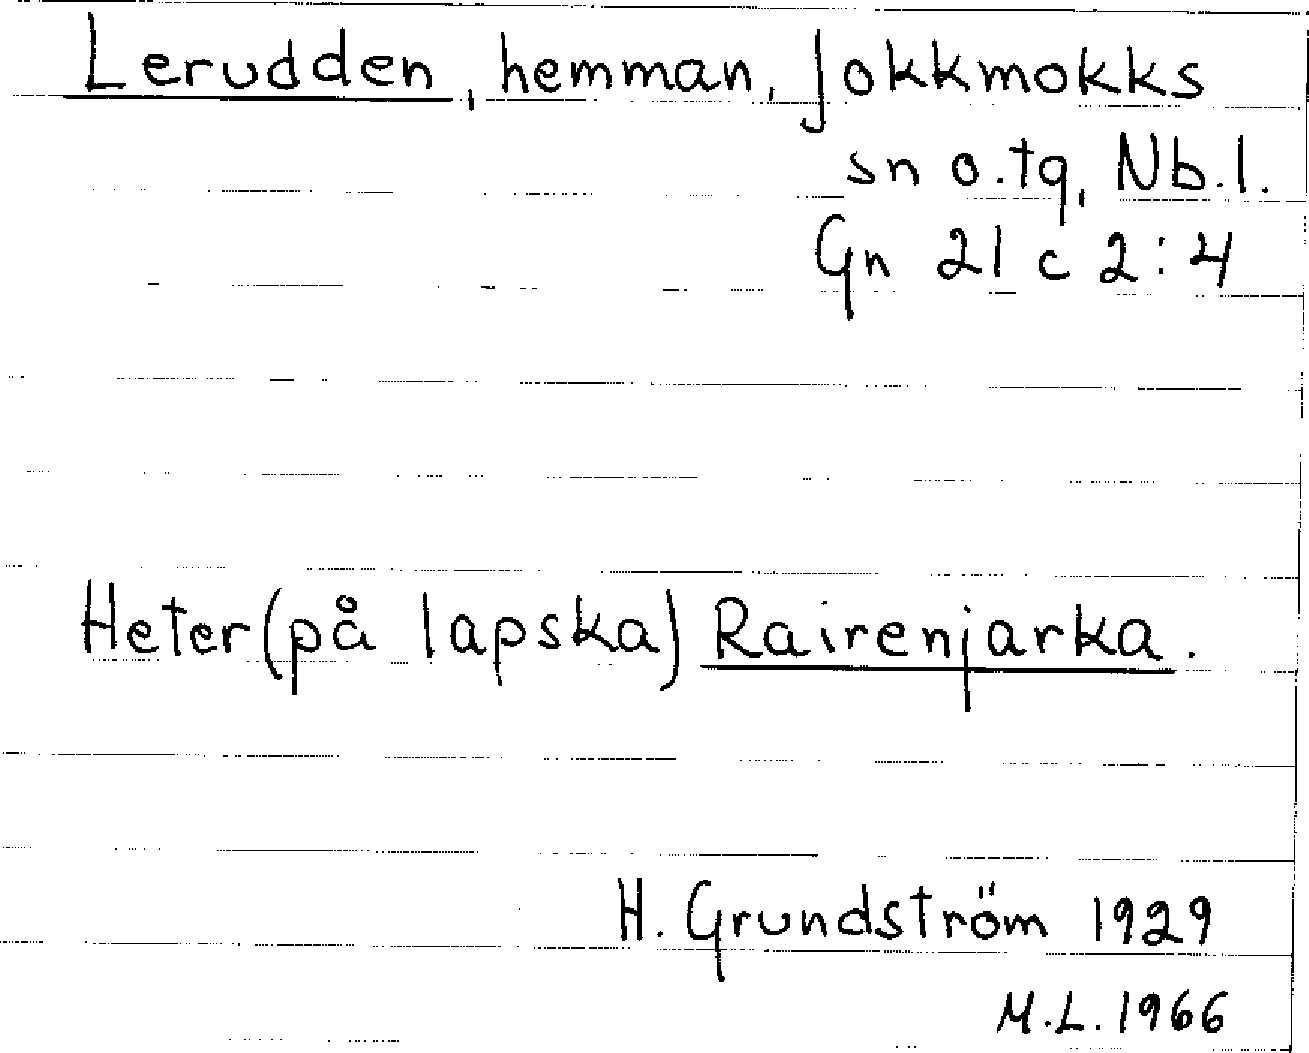 Lerudden, hemman, Jokkmokks
sn o. tg, Nb.l.
Gn 21 c 2:4
Heter (på lapska) Rairenjarka.
H. Grundström 1929
M.L. 1966